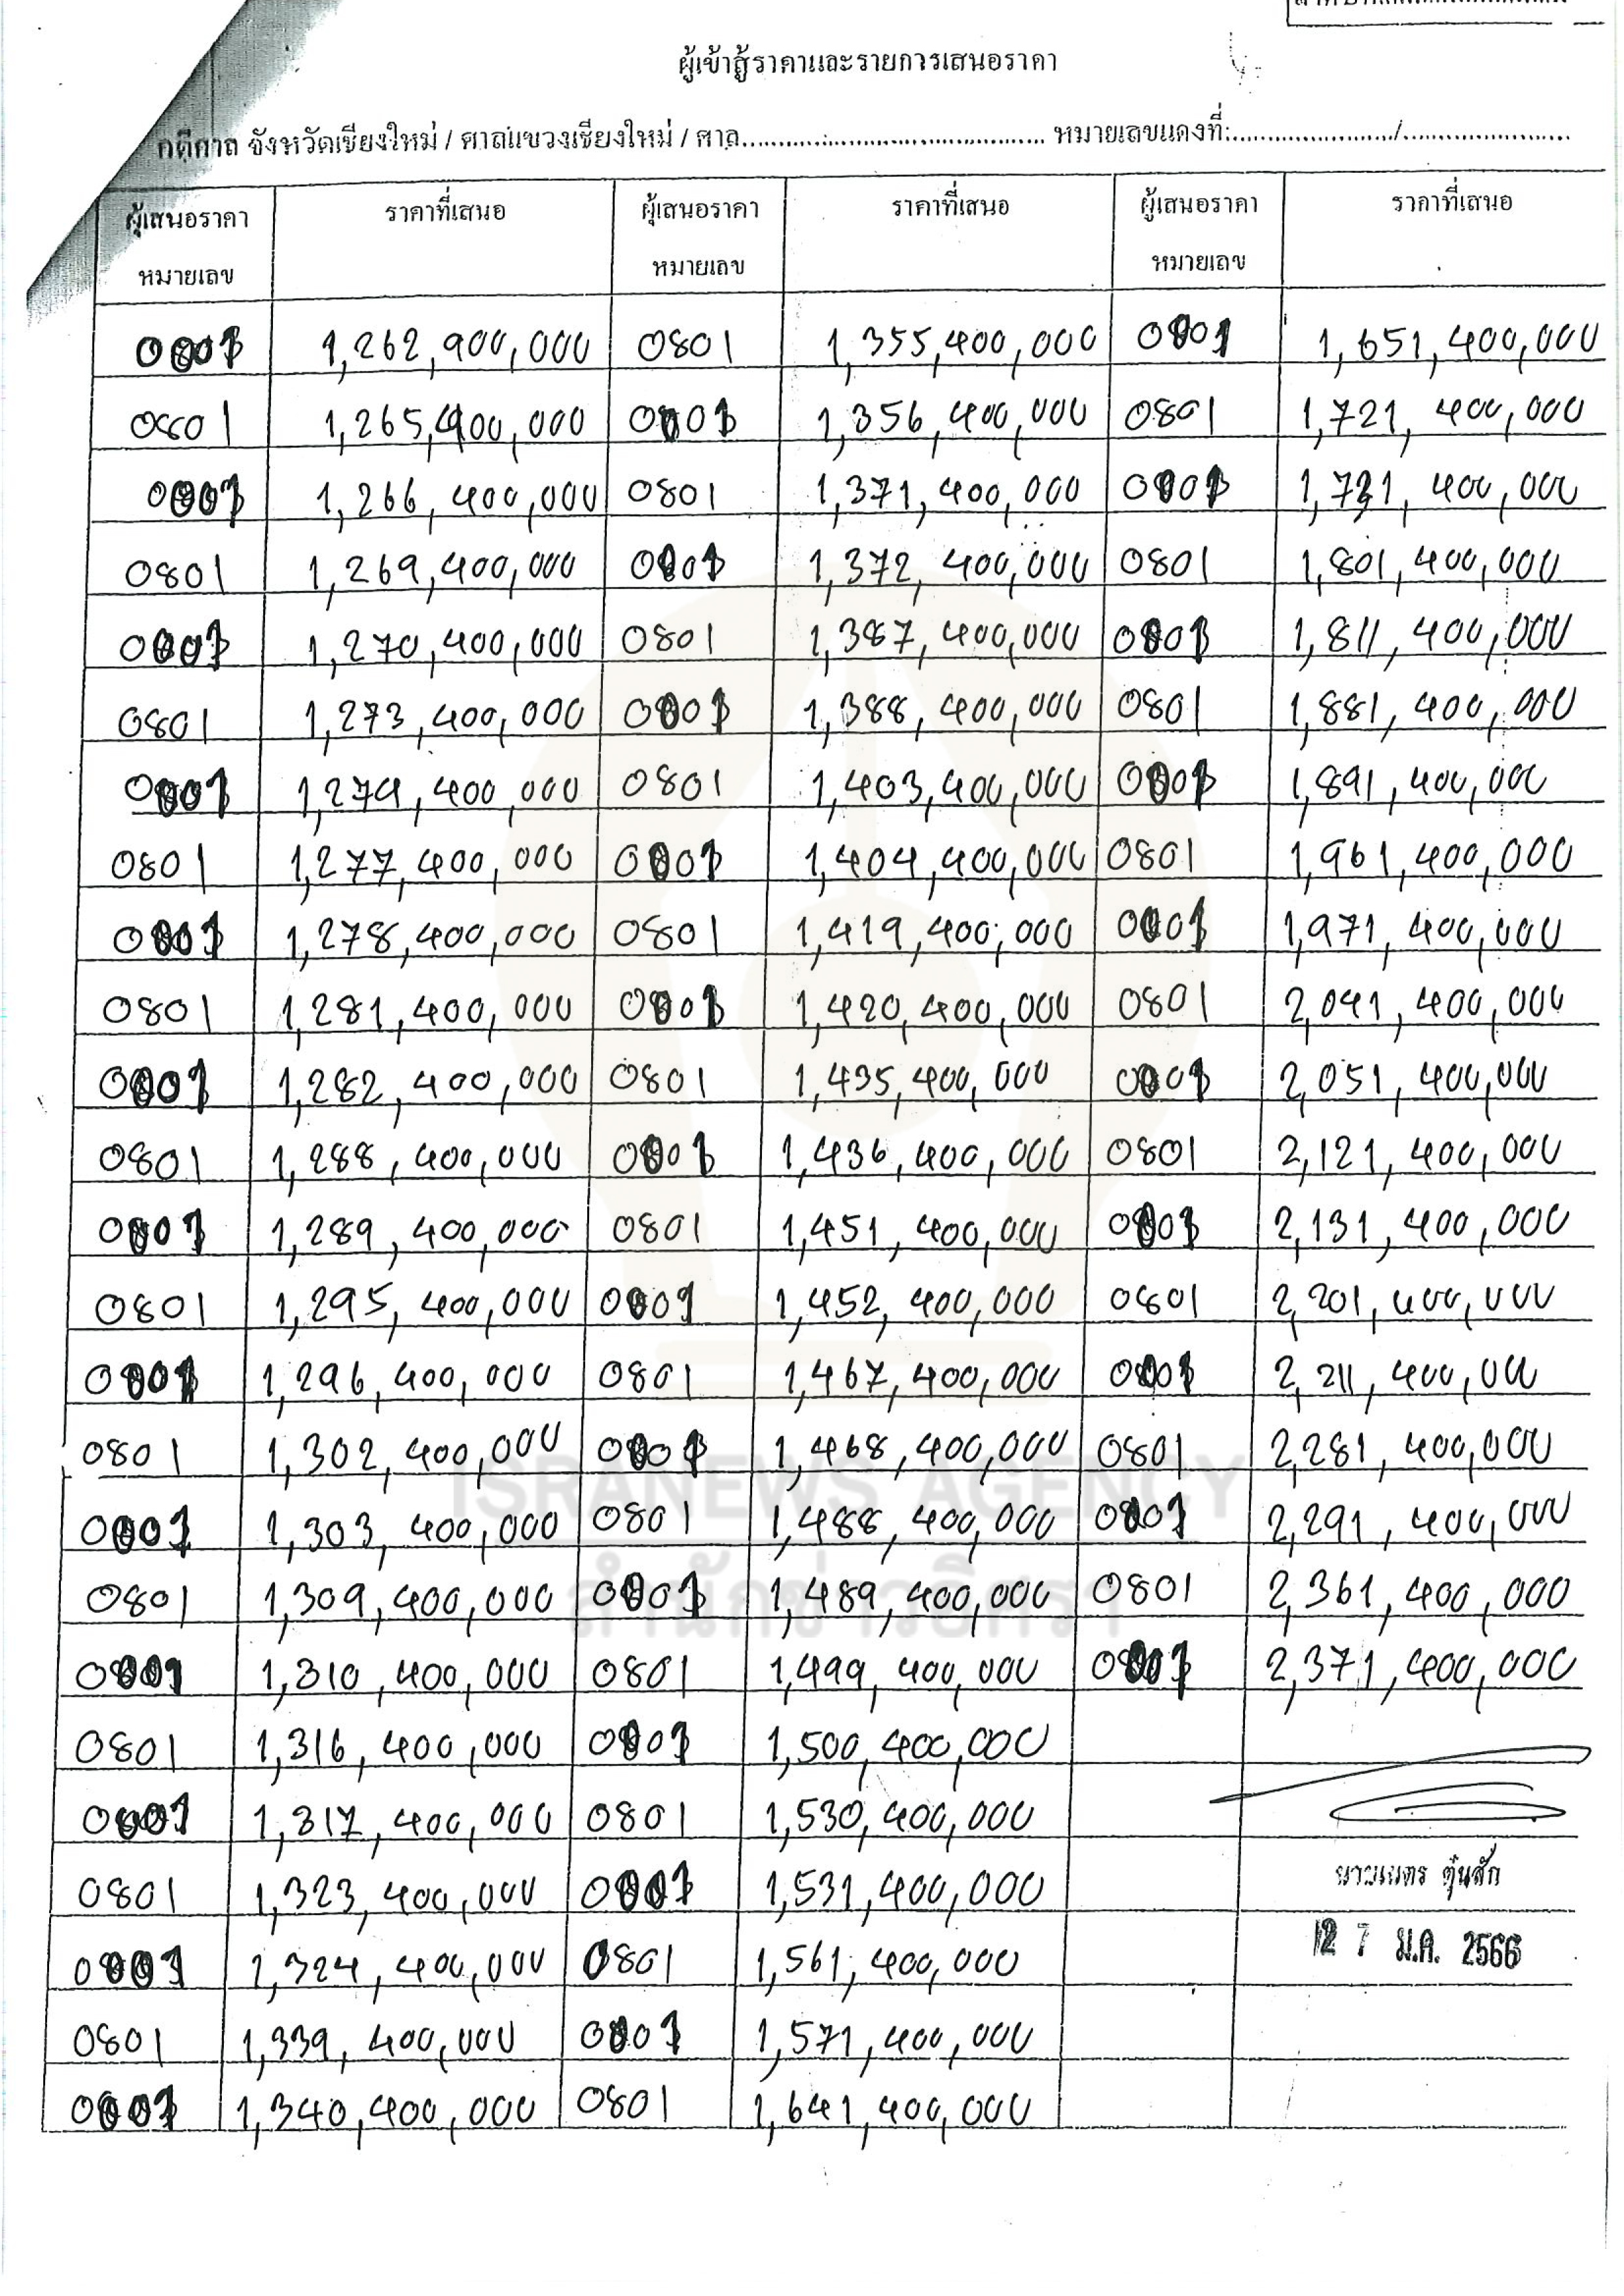 ผู้เข้าสู้ราคาและรายการเสนอราคา
คดีศาล จังหวัดเชียงใหม่ / ศาลแขวงเชียงใหม่ / ศาล.................................... หมายเลขแดงที่:...................../.....................
ผู้เสนอราคา ราคาที่เสนอ ผู้เสนอราคา ราคาที่เสนอ ผู้เสนอราคา ราคาที่เสนอ
หมายเลข หมายเลข หมายเลข
1,262,900,000 0801 1,355,400,000 1,651,400,000
0801 1,265,400,000 1,356,400,000 0801 1,721,400,000
1,266,400,000 0801 1,371,400,000 1,731,400,000
0801 1,269,400,000 1,372,400,000 0801 1,801,400,000
1,270,400,000 0801 1,387,400,000 1,811,400,000
0801 1,273,400,000 1,388,400,000 0801 1,881,400,000
1,274,400,000 0801 1,403,400,000 1,891,400,000
0801 1,277,400,000 1,404,400,000 0801 1,961,400,000
1,278,400,000 0801 1,419,400,000 1,971,400,000
0801 1,281,400,000 1,420,400,000 0801 2,041,400,000
1,282,400,000 0801 1,435,400,000 2,051,400,000
0801 1,288,400,000 1,436,400,000 0801 2,121,400,000
1,289,400,000 0801 1,451,400,000 2,131,400,000
0801 1,295,400,000 1,452,400,000 0801 2,201,400,000
1,296,400,000 0801 1,467,400,000 2,211,400,000
0801 1,302,400,000 1,468,400,000 0801 2,281,400,000
1,303,400,000 0801 1,488,400,000 2,291,400,000
0801 1,309,400,000 1,489,400,000 0801 2,361,400,000
1,310,400,000 0801 1,499,400,000 2,371,400,000
0801 1,316,400,000 1,500,400,000
1,317,400,000 0801 1,530,400,000
0801 1,323,400,000 1,531,400,000
1,324,400,000 0801 1,561,400,000
27 ม.ค. 2566
0801 1,339,400,000 1,571,400,000
1,340,400,000 0801 1,641,400,000
ISRANEWS AGENCY
สำนักข่าวอิศรา